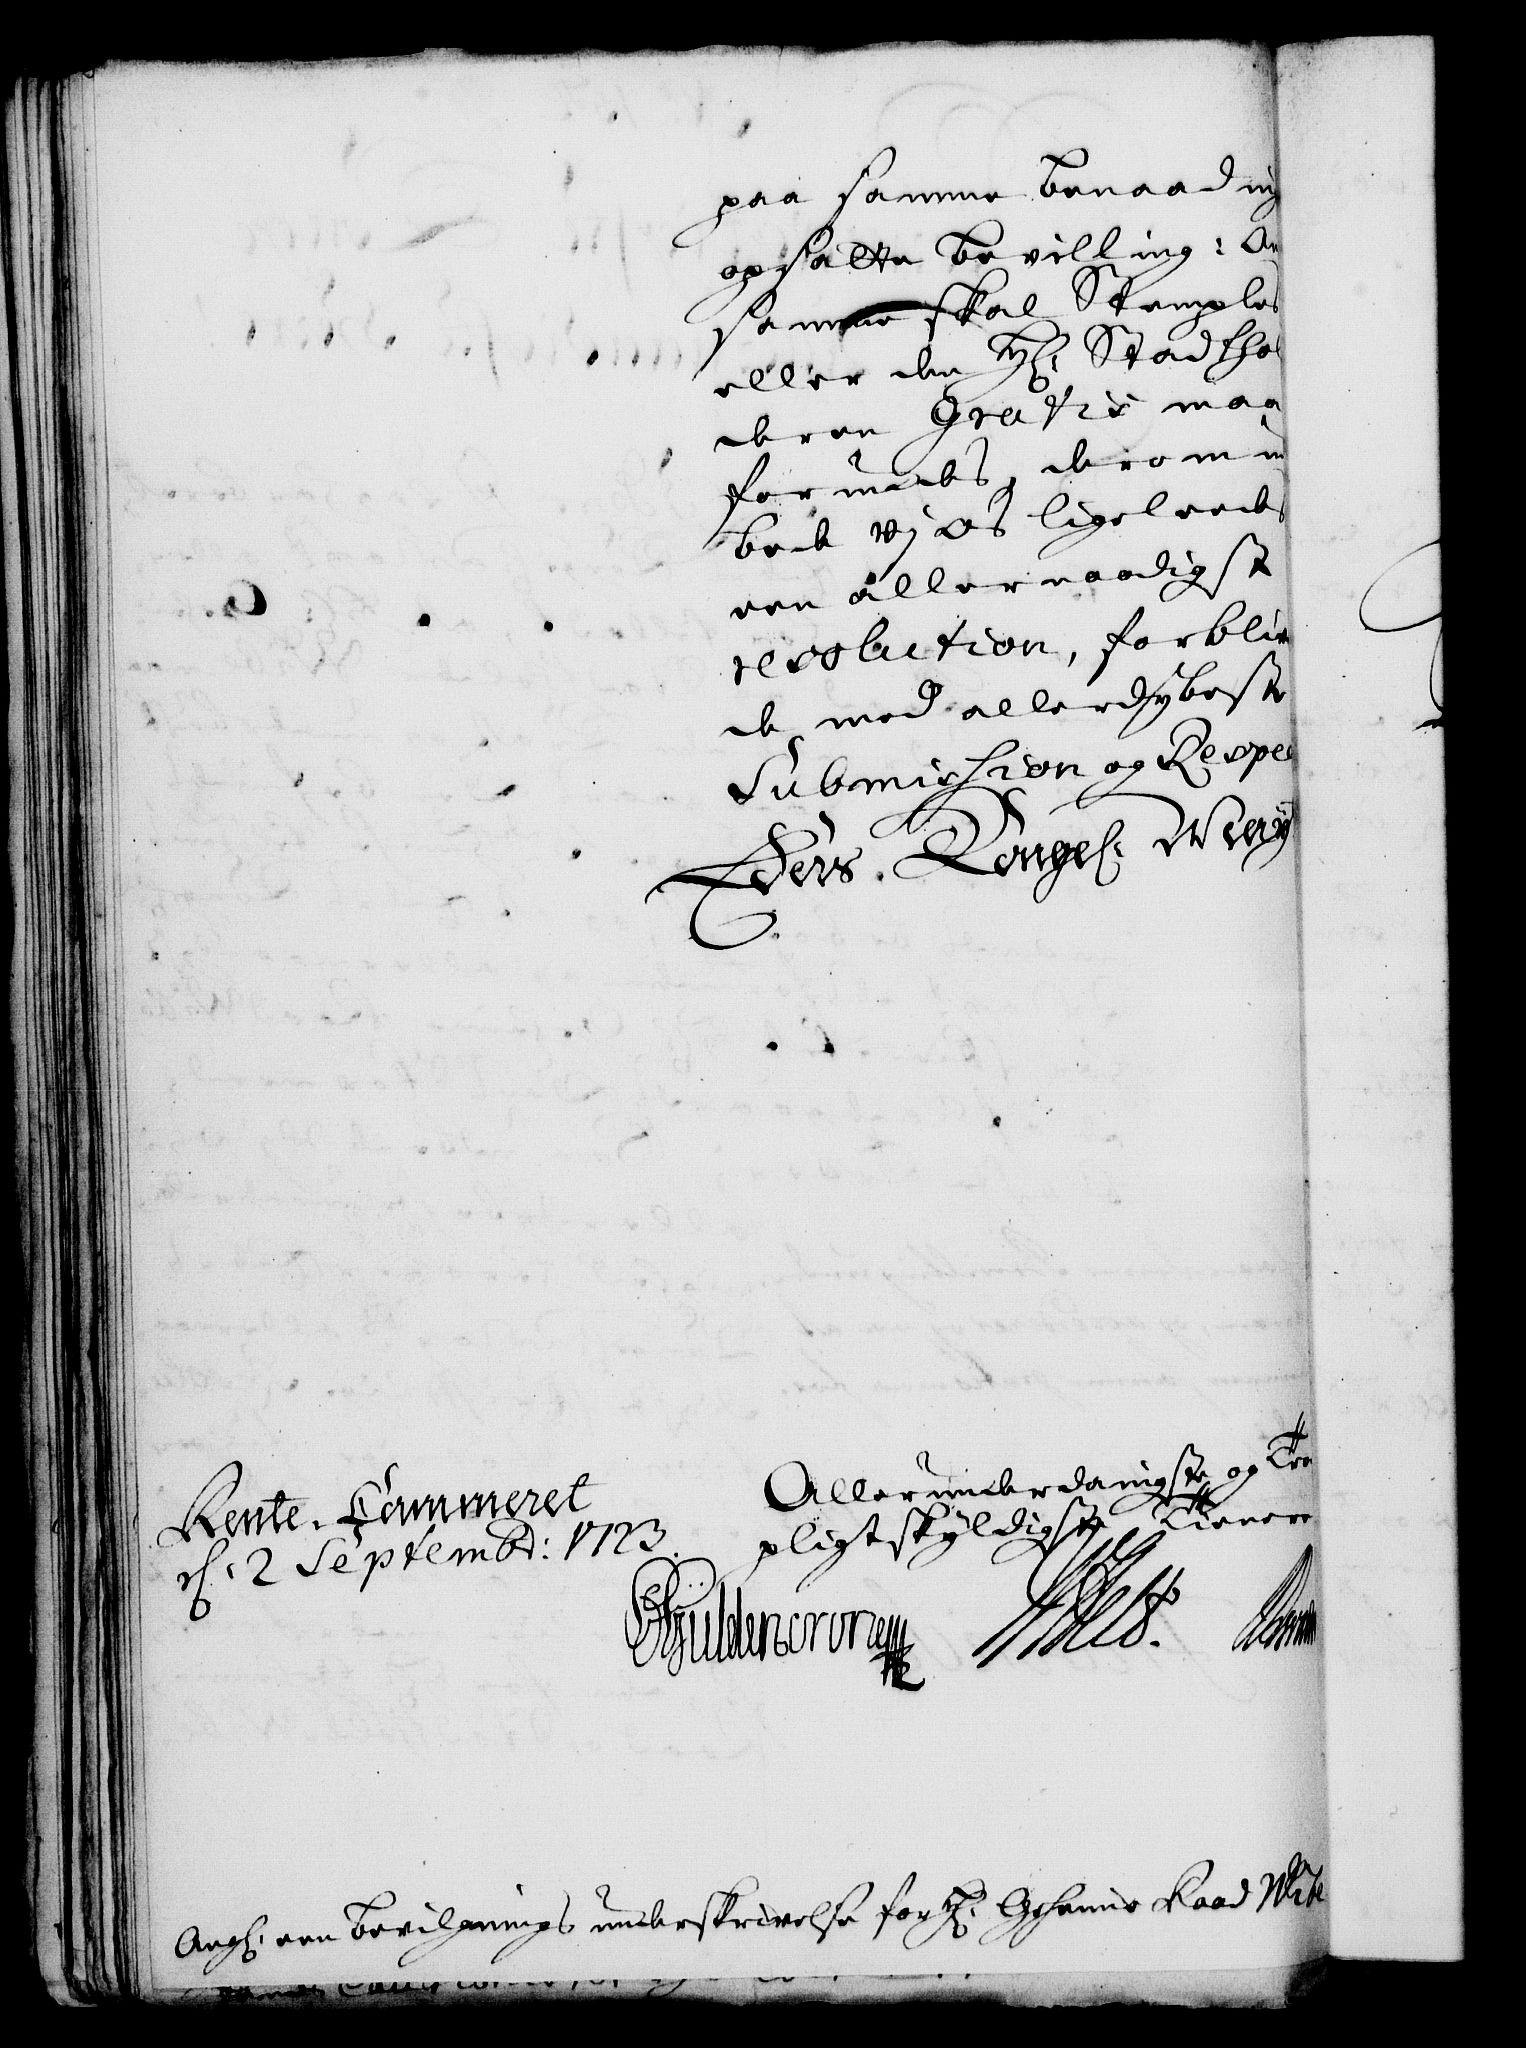 paa samme benaading
opsatte bevilling: Om
samme skal Stemples
eller den Hr: Stadthol
deren Gratis maa
forundes, derom ud
bede vj os ligeleedes
een allernaadigst
resolution, forbliv
de med allerdybeste
Submission og Respec
Eders. Kongel: May
Rente-Cammeret
d: 2 Septembr: 1723.
Allerunderdanigste og Tro
pligtskyldigste Tienere
Gÿldencrone
Ang: een bevilgnings underskrivelse for Hr: Geheime Raad Wibe